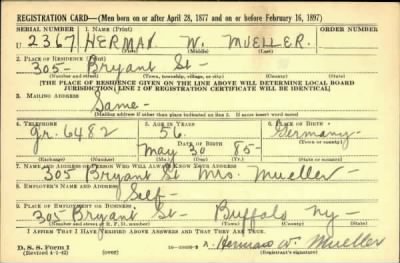 REGISTRATION CARD—(Men born on or after April 28, 1877 and on or before February 16, 1897)
SERIAL NUMBER 1. NAME (Print) ORDER NUMBER
U 2367 HERMAN W. MUELLER.
(First) (Middle) (Last)
2. PLACE OF RESIDENCE (Print)
305 - Bryant St -
(Number and street) (Town, township, village, or city) (County) (State)
[THE PLACE OF RESIDENCE GIVEN ON THE LINE ABOVE WILL DETERMINE LOCAL BOARD
JURISDICTION; LINE 2 OF REGISTRATION CERTIFICATE WILL BE IDENTICAL]
3. MAILING ADDRESS
Same -
[Mailing address if other than place indicated on line 2. If same insert word same]
4. TELEPHONE 5. AGE IN YEARS 6. PLACE OF BIRTH
Gr. 6482 56. Germany -
DATE OF BIRTH (Town or county)
May 30 85 -
(Exchange) (Number) (Mo.) (Day) (Yr.) (State or country)
7. NAME AND ADDRESS OF PERSON WHO WILL ALWAYS KNOW YOUR ADDRESS
305 Bryant St - Mrs. Mueller -
8. EMPLOYER'S NAME AND ADDRESS
Self -
9. PLACE OF EMPLOYMENT OR BUSINESS
305 Bryant St - Buffalo Ny -
(Number and street or R. F. D. number) (Town) (County) (State)
I AFFIRM THAT I HAVE VERIFIED ABOVE ANSWERS AND THAT THEY ARE TRUE.
D. S. S. Form 1 Herman W. Mueller
(Revised 4-1-42) (over)